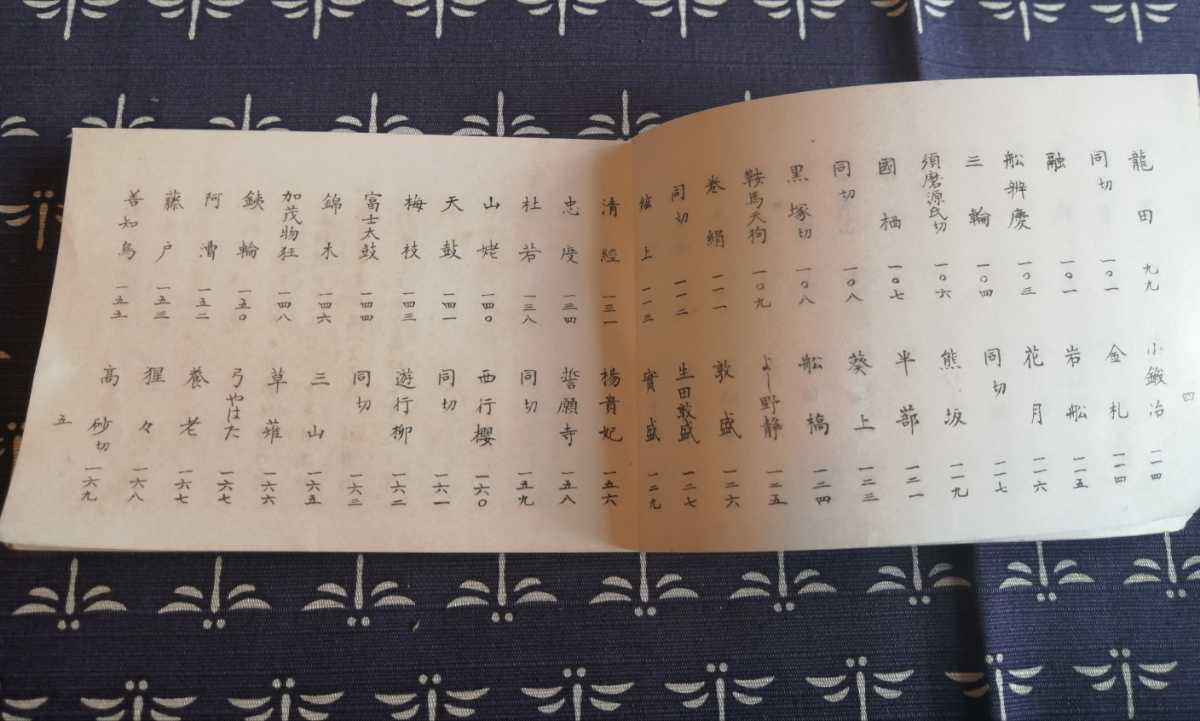 龍田 九九
同切 一〇一
融 一〇一
船辨慶 一〇三
三輪 一〇四
須磨源氏切 一〇六
國栖 一〇七
同切 一〇八
黒塚切 一〇八
鞍馬天狗 一〇九
巻絹 一一一
同切 一一二
絃上 一一三
小鍛冶 一一四
金札 一一四
岩船 一一五
花月 一一六
同切 一一七
熊坂 一一九
半蔀 一二一
葵上 一二三
船橋 一二四
よし野静 一二五
敦盛 一二六
生田敦盛 一二七
實盛 一二九
四
清經 一三一
忠度 一三四
杜若 一三八
山姥 一四〇
天鼓 一四一
梅枝 一四三
富士太鼓 一四四
錦木 一四六
加茂物狂 一四八
銕輪 一五〇
阿漕 一五二
藤戸 一五三
善知鳥 一五五
楊貴妃 一五六
誓願寺 一五八
同切 一五九
西行櫻 一六〇
同切 一六一
遊行柳 一六二
同切 一六三
三山 一六五
草薙 一六六
弓やはた 一六七
養老 一六七
猩々 一六八
高砂切 一六九
五